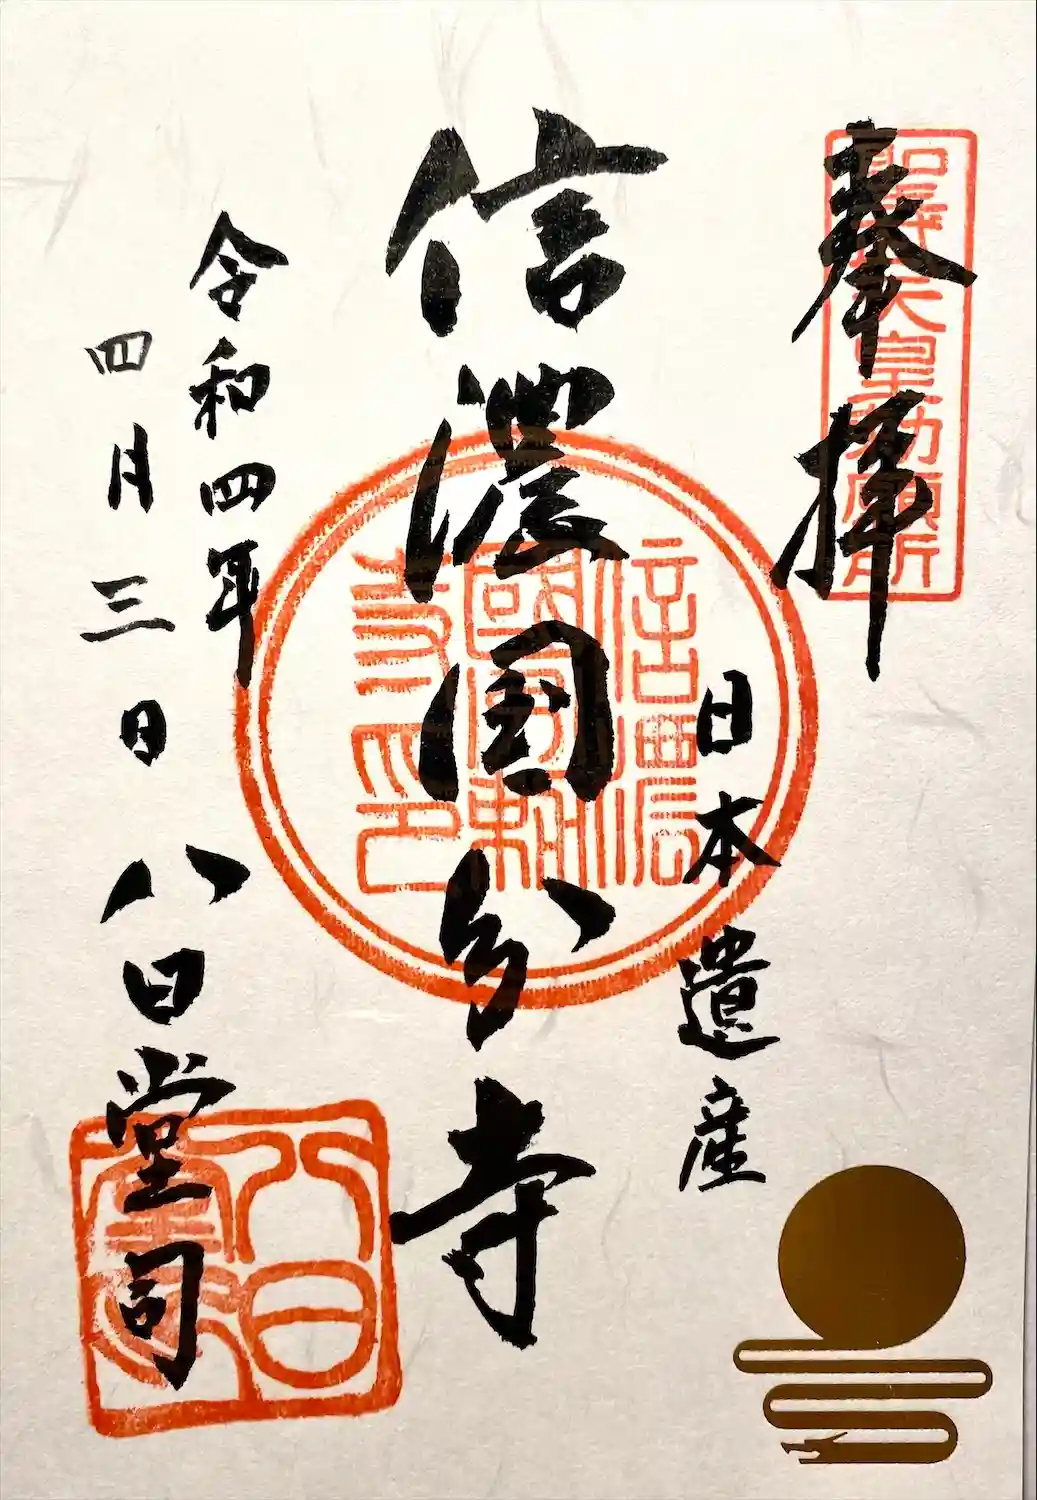 奉拝
聖武天皇勅願所
日本遺産
信濃国分寺
信濃
國分
寺印
令和四年
四月三日
八日堂司
八日